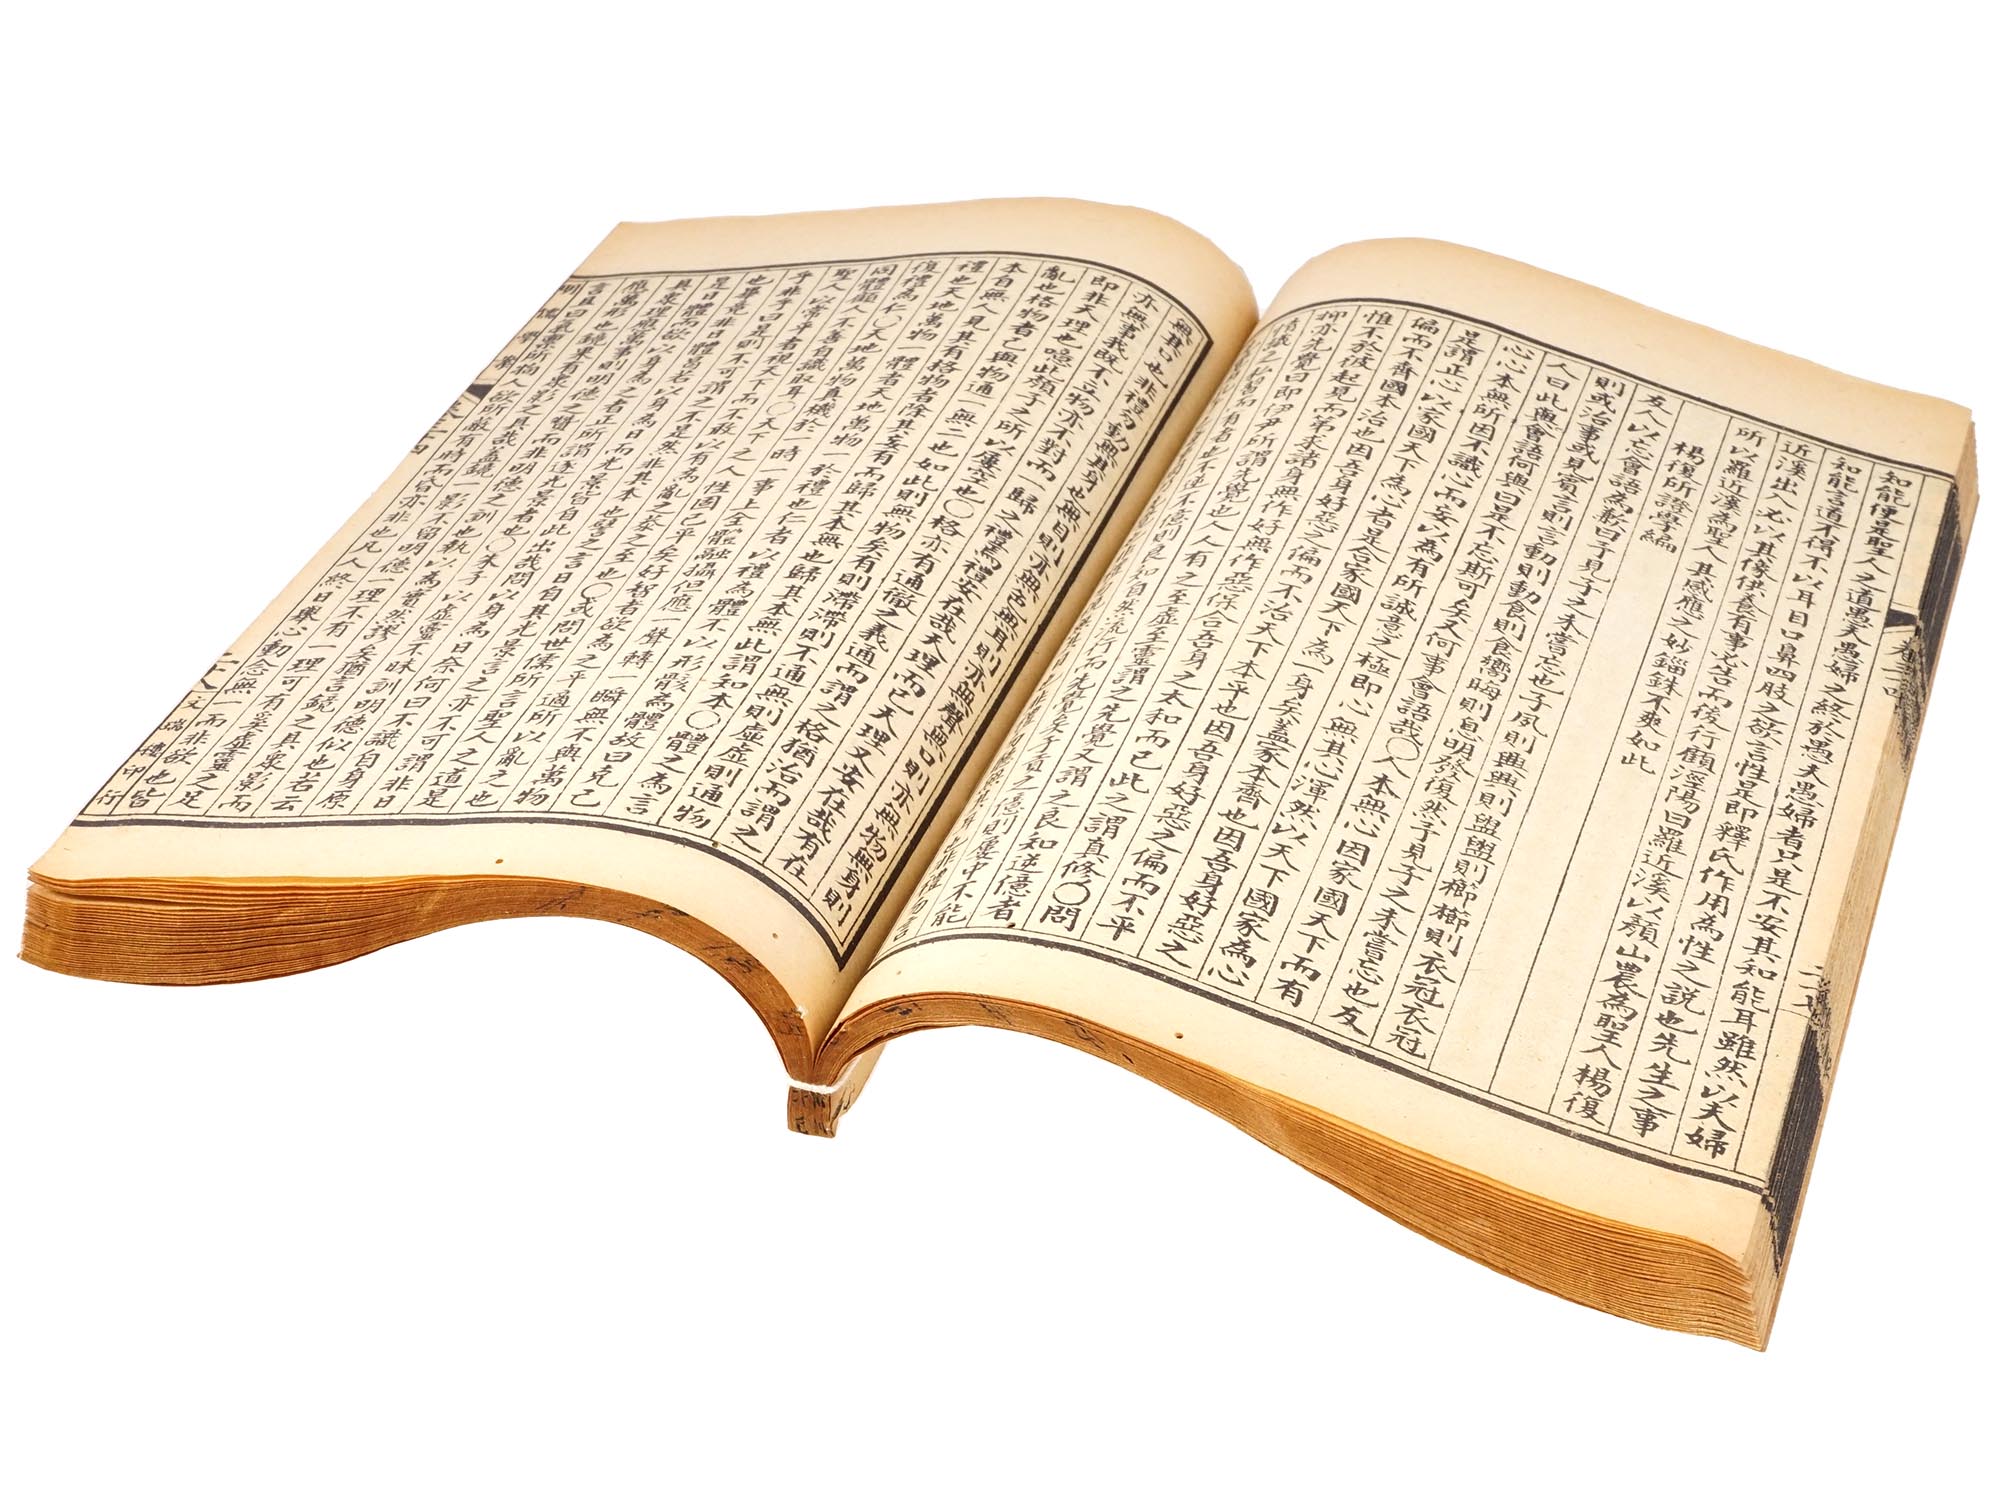 知能便是聖人之道愚夫愚婦之終於愚夫愚婦者只是不安其知能耳雖然以夫婦
知能言道不得不以耳目口鼻四肢之欲言性是即釋氏作用為性之說也先生之事
近溪出入必以其像供養有事必告而後行顧涇陽曰羅近溪以顏山農為聖人楊復
所以羅近溪為聖人其感應之妙錙銖不爽如此
楊復所證學編
友人以忘會語為歉曰予見子之未嘗忘也子夙則興興則盥盥則櫛櫛則衣冠衣冠
則或治事或見賓言則言動則動食則食嚮晦則息明發復然予見子之未嘗忘也友
人曰此與會語何與曰是不忘斯可矣又何事會語哉○人本無心因家國天下而有
心心本無所因不識心而妄以為有所誠意之極即心無其心渾然以天下國家為心
是謂正心以家國天下為心者是合家國天下為一身矣蓋家本齊也因吾身好惡之
偏而不齊國本治也因吾身好惡之偏而不治天下本平也因吾身好惡之偏而不平
惟不於彼起見而第求諸身無作好無作惡保合吾身之太和而已此之謂真修○問
抑亦先覺曰即伊尹所謂先覺也人人有之至虛至靈謂之先覺又謂之良知逆億者
情識之私習而有者也不逆不億則良知自然流行而先覺矣子貢之億則屢中不能
無其口也非禮勿動無其身也無目則亦無色無耳則亦無聲無口則亦無物無身則
亦無事我既不立物亦不對而一歸之禮焉禮安在哉天理而已天理又安在哉有在
即非天理也噫此顏子之所以屢空也○格亦有通徹之義通而謂之格猶治而謂之
亂也格物者己與物通一無二也如此則無物矣有則滯滯則不通無則虛虛則通物
本自無人見其有格物者除其妄有而歸其本無也歸其本無此謂知本○體之為言
禮也天地萬物一體者天地萬物一於禮也仁者以禮為體不以形骸為體故曰克己
復禮為仁○天地萬物真機於一時一事上全體融攝但應一聲轉一瞬無不與萬物
同體顧人不善自識取耳○天下之人性固已平矣好智者欲為之平適所以亂之也
聖人以常平者視天下而不敢以有為亂之恭之至也○或問世儒所言聖人之道是
乎非乎曰是則不可謂之不是然非其本也譬之言日自其光景言之亦不可謂非日
也畢竟非日體曷若以身為日而光景皆自此出哉問以身為日奈何曰不識自身原
是日體而欲以身為之者正所謂逐光景者也○朱子以虛靈不昧訓明德似也若云
具眾理應萬事則明德之贊而非明德之訓也執以為實然謬矣猶言鏡之具眾影而
應萬形也鏡果有眾影之具哉蓋鏡一影不留明德一理不有一理可有奚虛靈之足
言且曰氣稟所拘人欲所蔽有時而昏亦非也凡人終日舉心動念無一而非欲也皆
卷三十四 二十八 文瑞樓印行